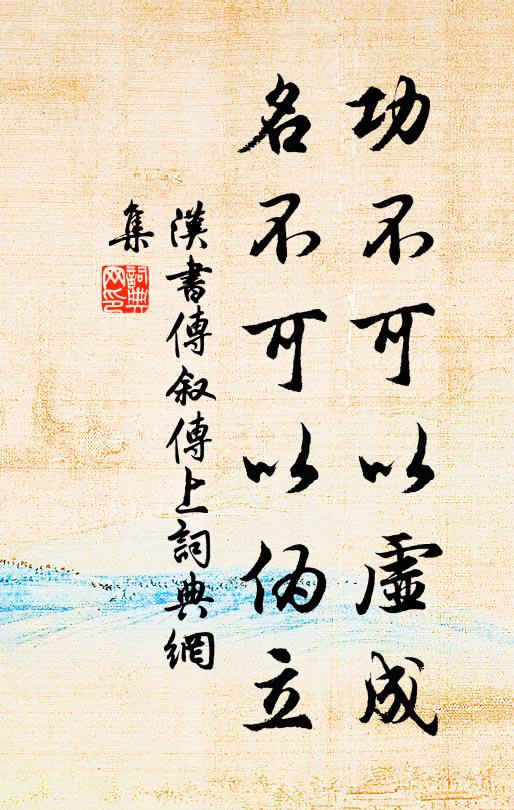 功不可以虛成
名不可以伪立
漢書傳叙傳上詞典網
集
詞典
网印